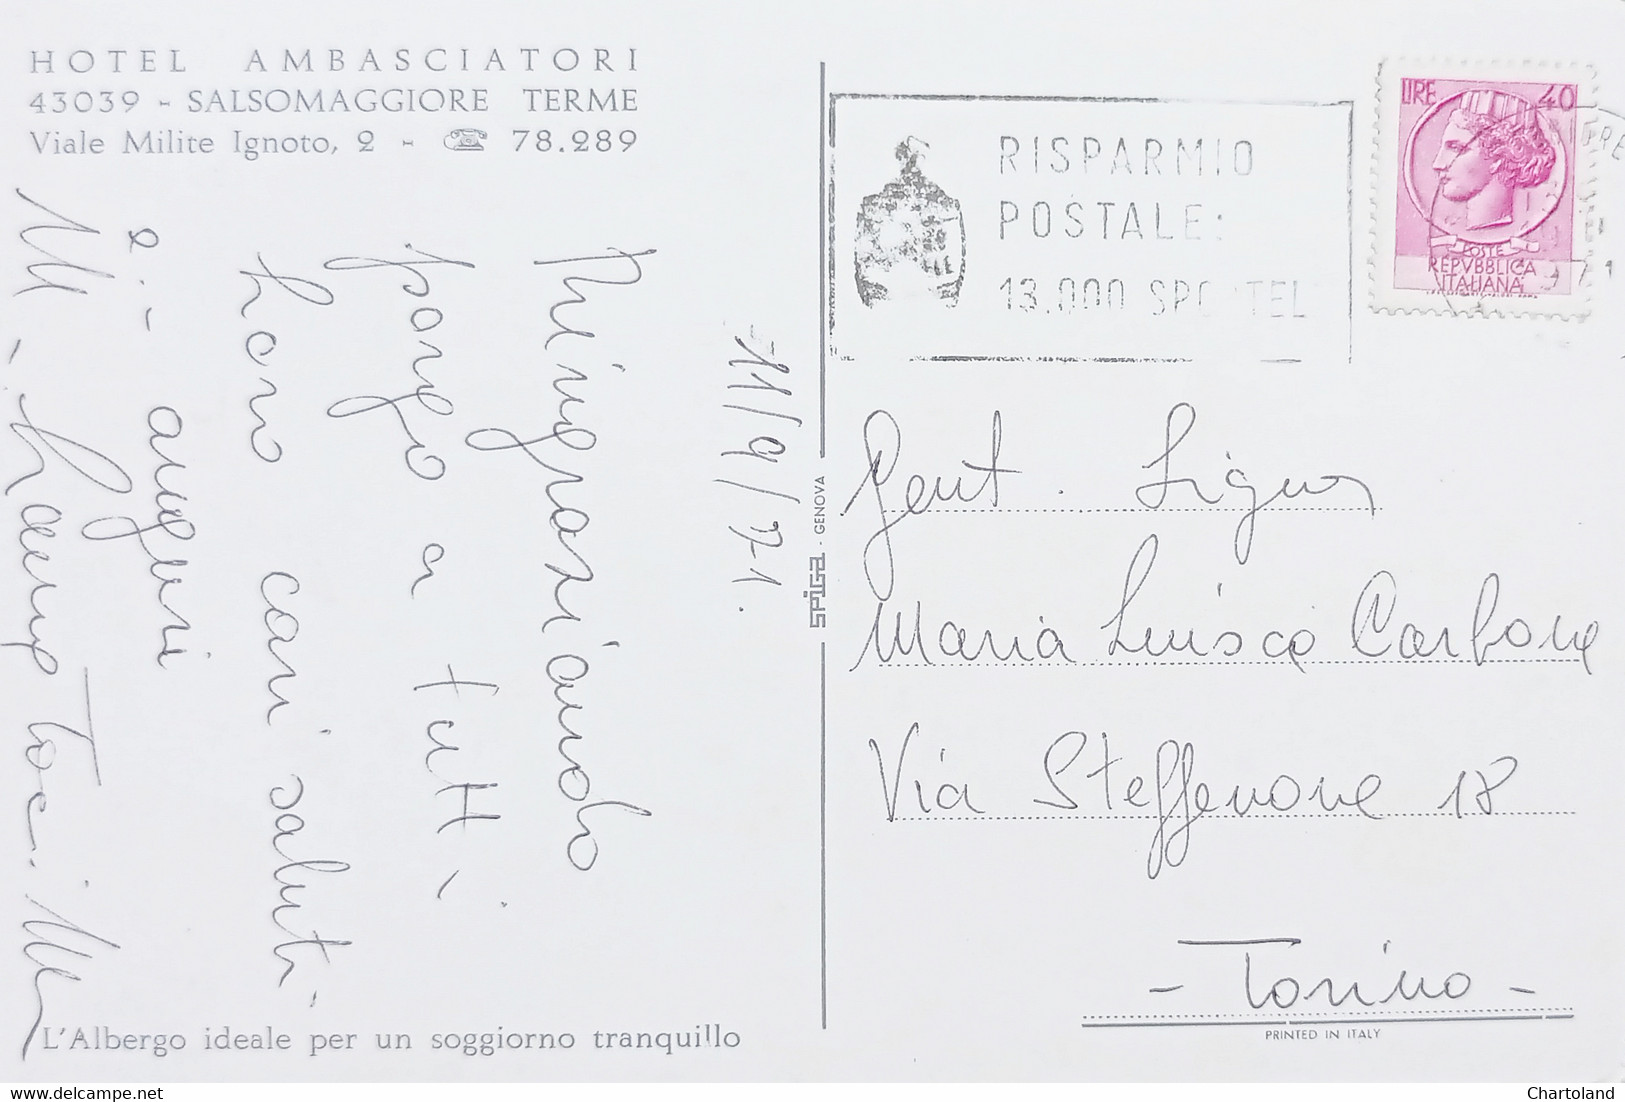 HOTEL AMBASCIATORI
43039 - SALSOMAGGIORE TERME
Viale Milite Ignoto, 2 - ☎ 78.289
11/9/71.
Ringraziando
porgo a tutti
loro cari saluti
e auguri
L'Albergo ideale per un soggiorno tranquillo
SPIGA - GENOVA
RISPARMIO
POSTALE:
13.000 SPORTEL
LIRE 40
POSTE
REPVBBLICA
ITALIANA
Gent. Signora
Maria Luisa Carbone
Via Steffenone 18
- Torino -
PRINTED IN ITALY
Chartoland